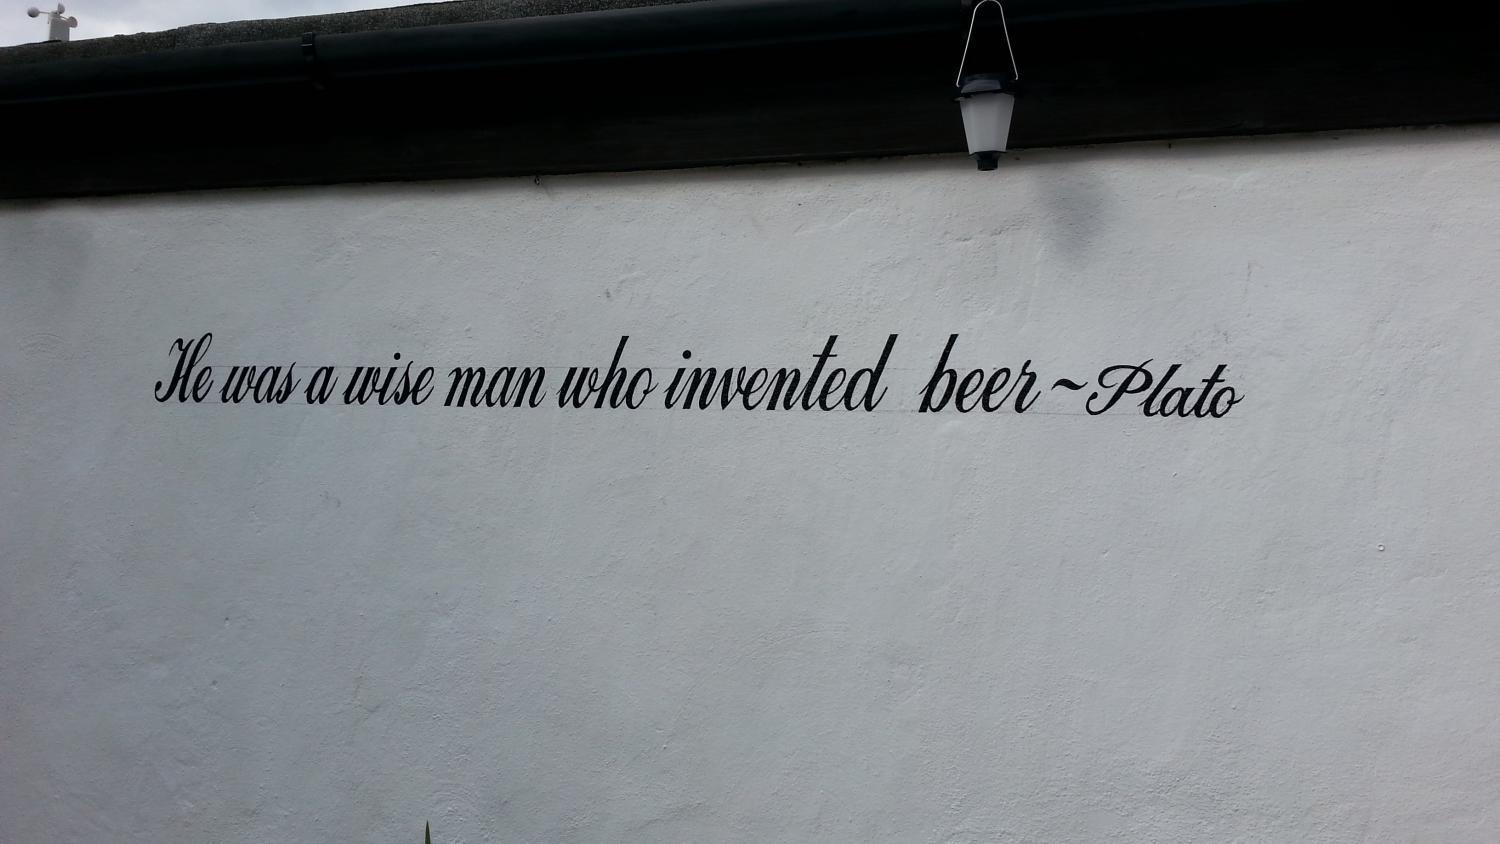 He was a wise man who invented beer ~ Plato